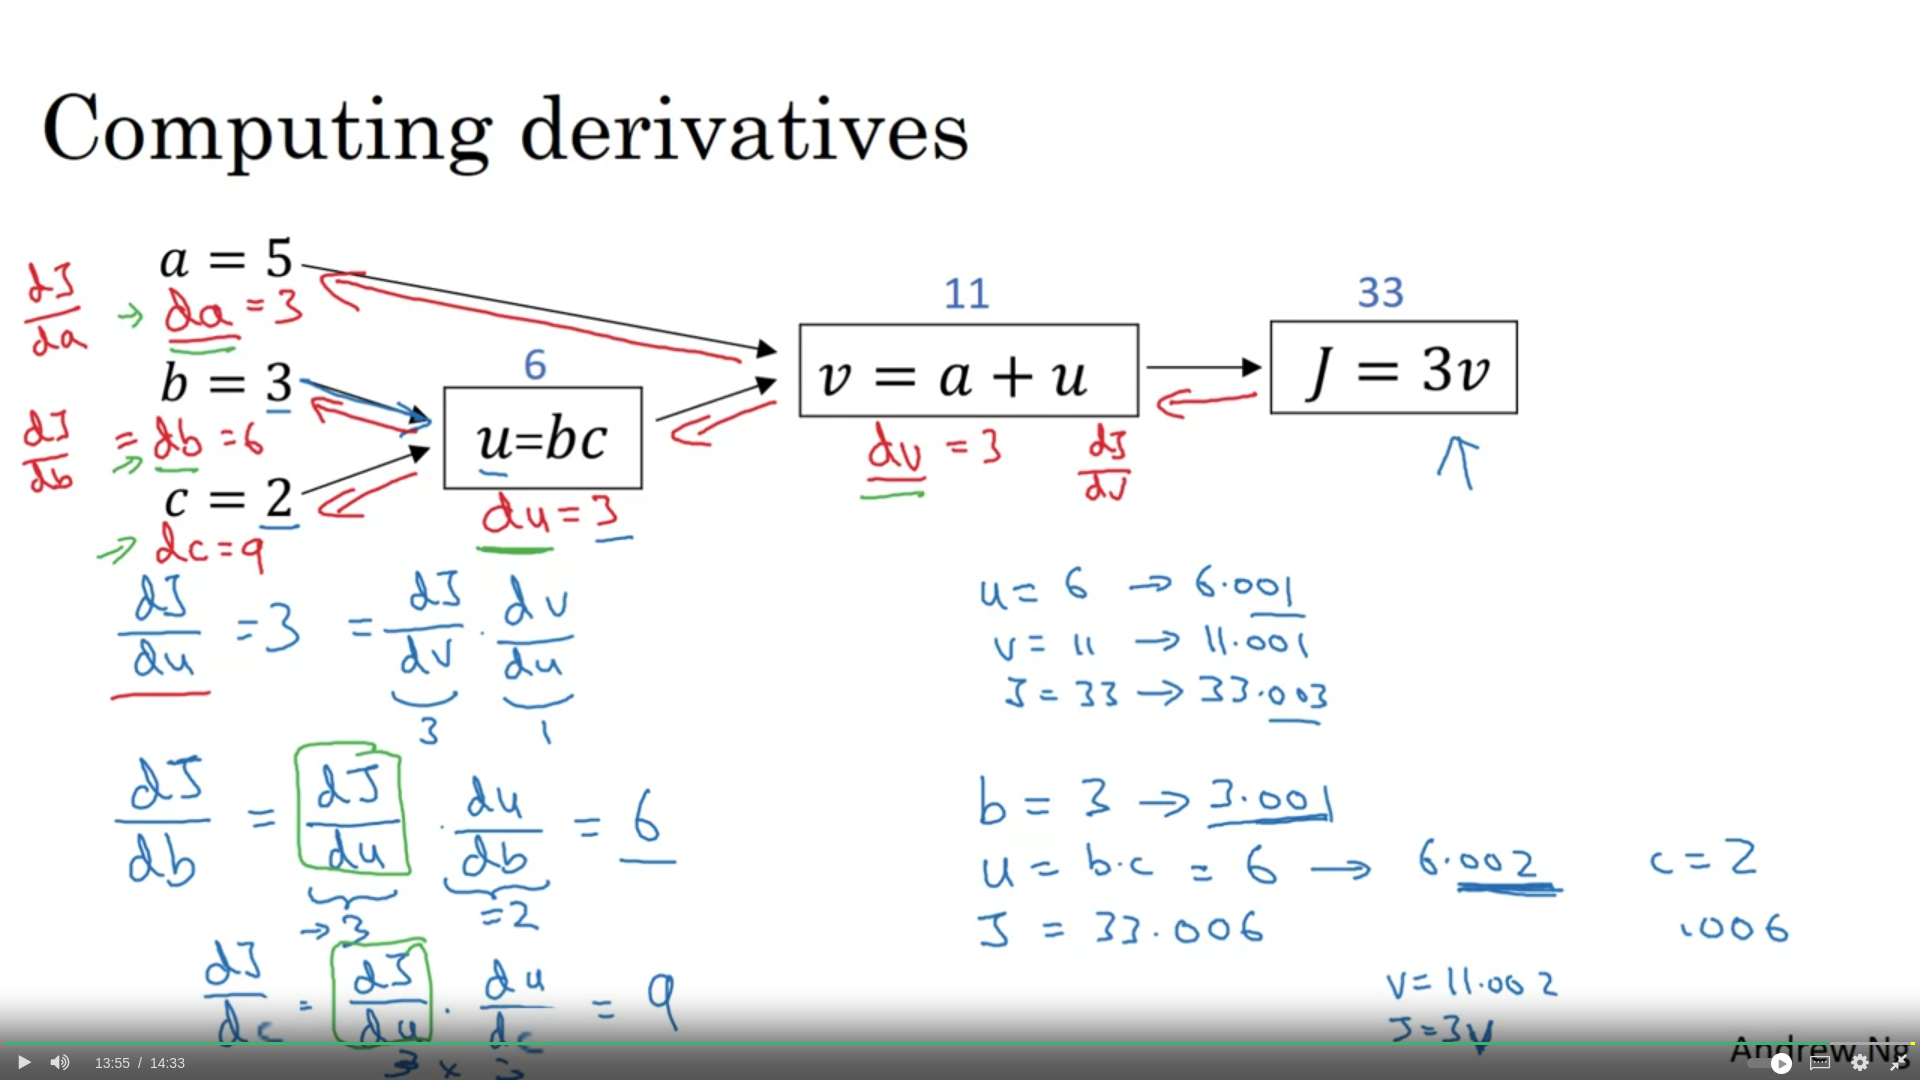 Computing derivatives
a = 5
dJ/da → da = 3
b = 3
dJ/db = db = 6
c = 2
→ dc = 9
6
u=bc
du = 3
11
v = a + u
dv = 3 dJ/dv
33
J = 3v
dJ/du = 3 = dJ/dv · dv/du
3 1
dJ/db = dJ/du · du/db = 6
→ 3 = 2
dJ/dc = dJ/du · du/dc = 9
3 × 3
u = 6 → 6.001
v = 11 → 11.001
J = 33 → 33.003
b = 3 → 3.001
u = b·c = 6 → 6.002 c = 2
J = 33.006 .006
v = 11.002
J = 3v
Andrew Ng
13:55 / 14:33